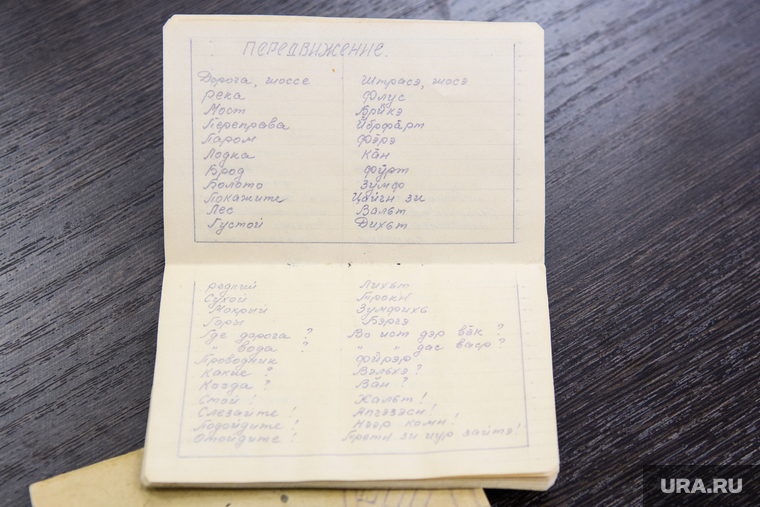 ПЕРЕДВИЖЕНИЕ.
Дорога, шоссе Штрасэ, шосэ
Река Флус
Мост Брйкэ
Переправа Йбрфāрт
Паром Фэ̄рэ
Лодка Ка̄н
Брод Фӯрт
Болото Зумф
Покажите Цайгн зи
Лес Вальт
Густой Дихьт
Редкий Лихьт
Сухой Трокн
Мокрый Зумфихь
Горы Бэргэ
Где дорога? Во ист дэр вēк?
" вода? " " дас васр?
Проводник Фӣрэр
Какие? Вэльхэ?
Когда? Ва̄н?
Стой! Хальт!
Слезайте! Апгэзэсн!
Подойдите! Хэр комн!
Отойдите! Трэтн зи цур зайтэ!
URA.RU